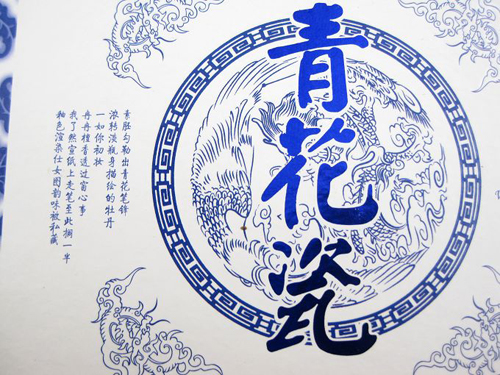 青花瓷
素胚勾勒出青花笔锋
浓转淡瓶身描绘的牡丹
一如你初妆
冉冉檀香透过窗心事
我了然宣纸上走笔至此搁一半
釉色渲染仕女图韵味被私藏